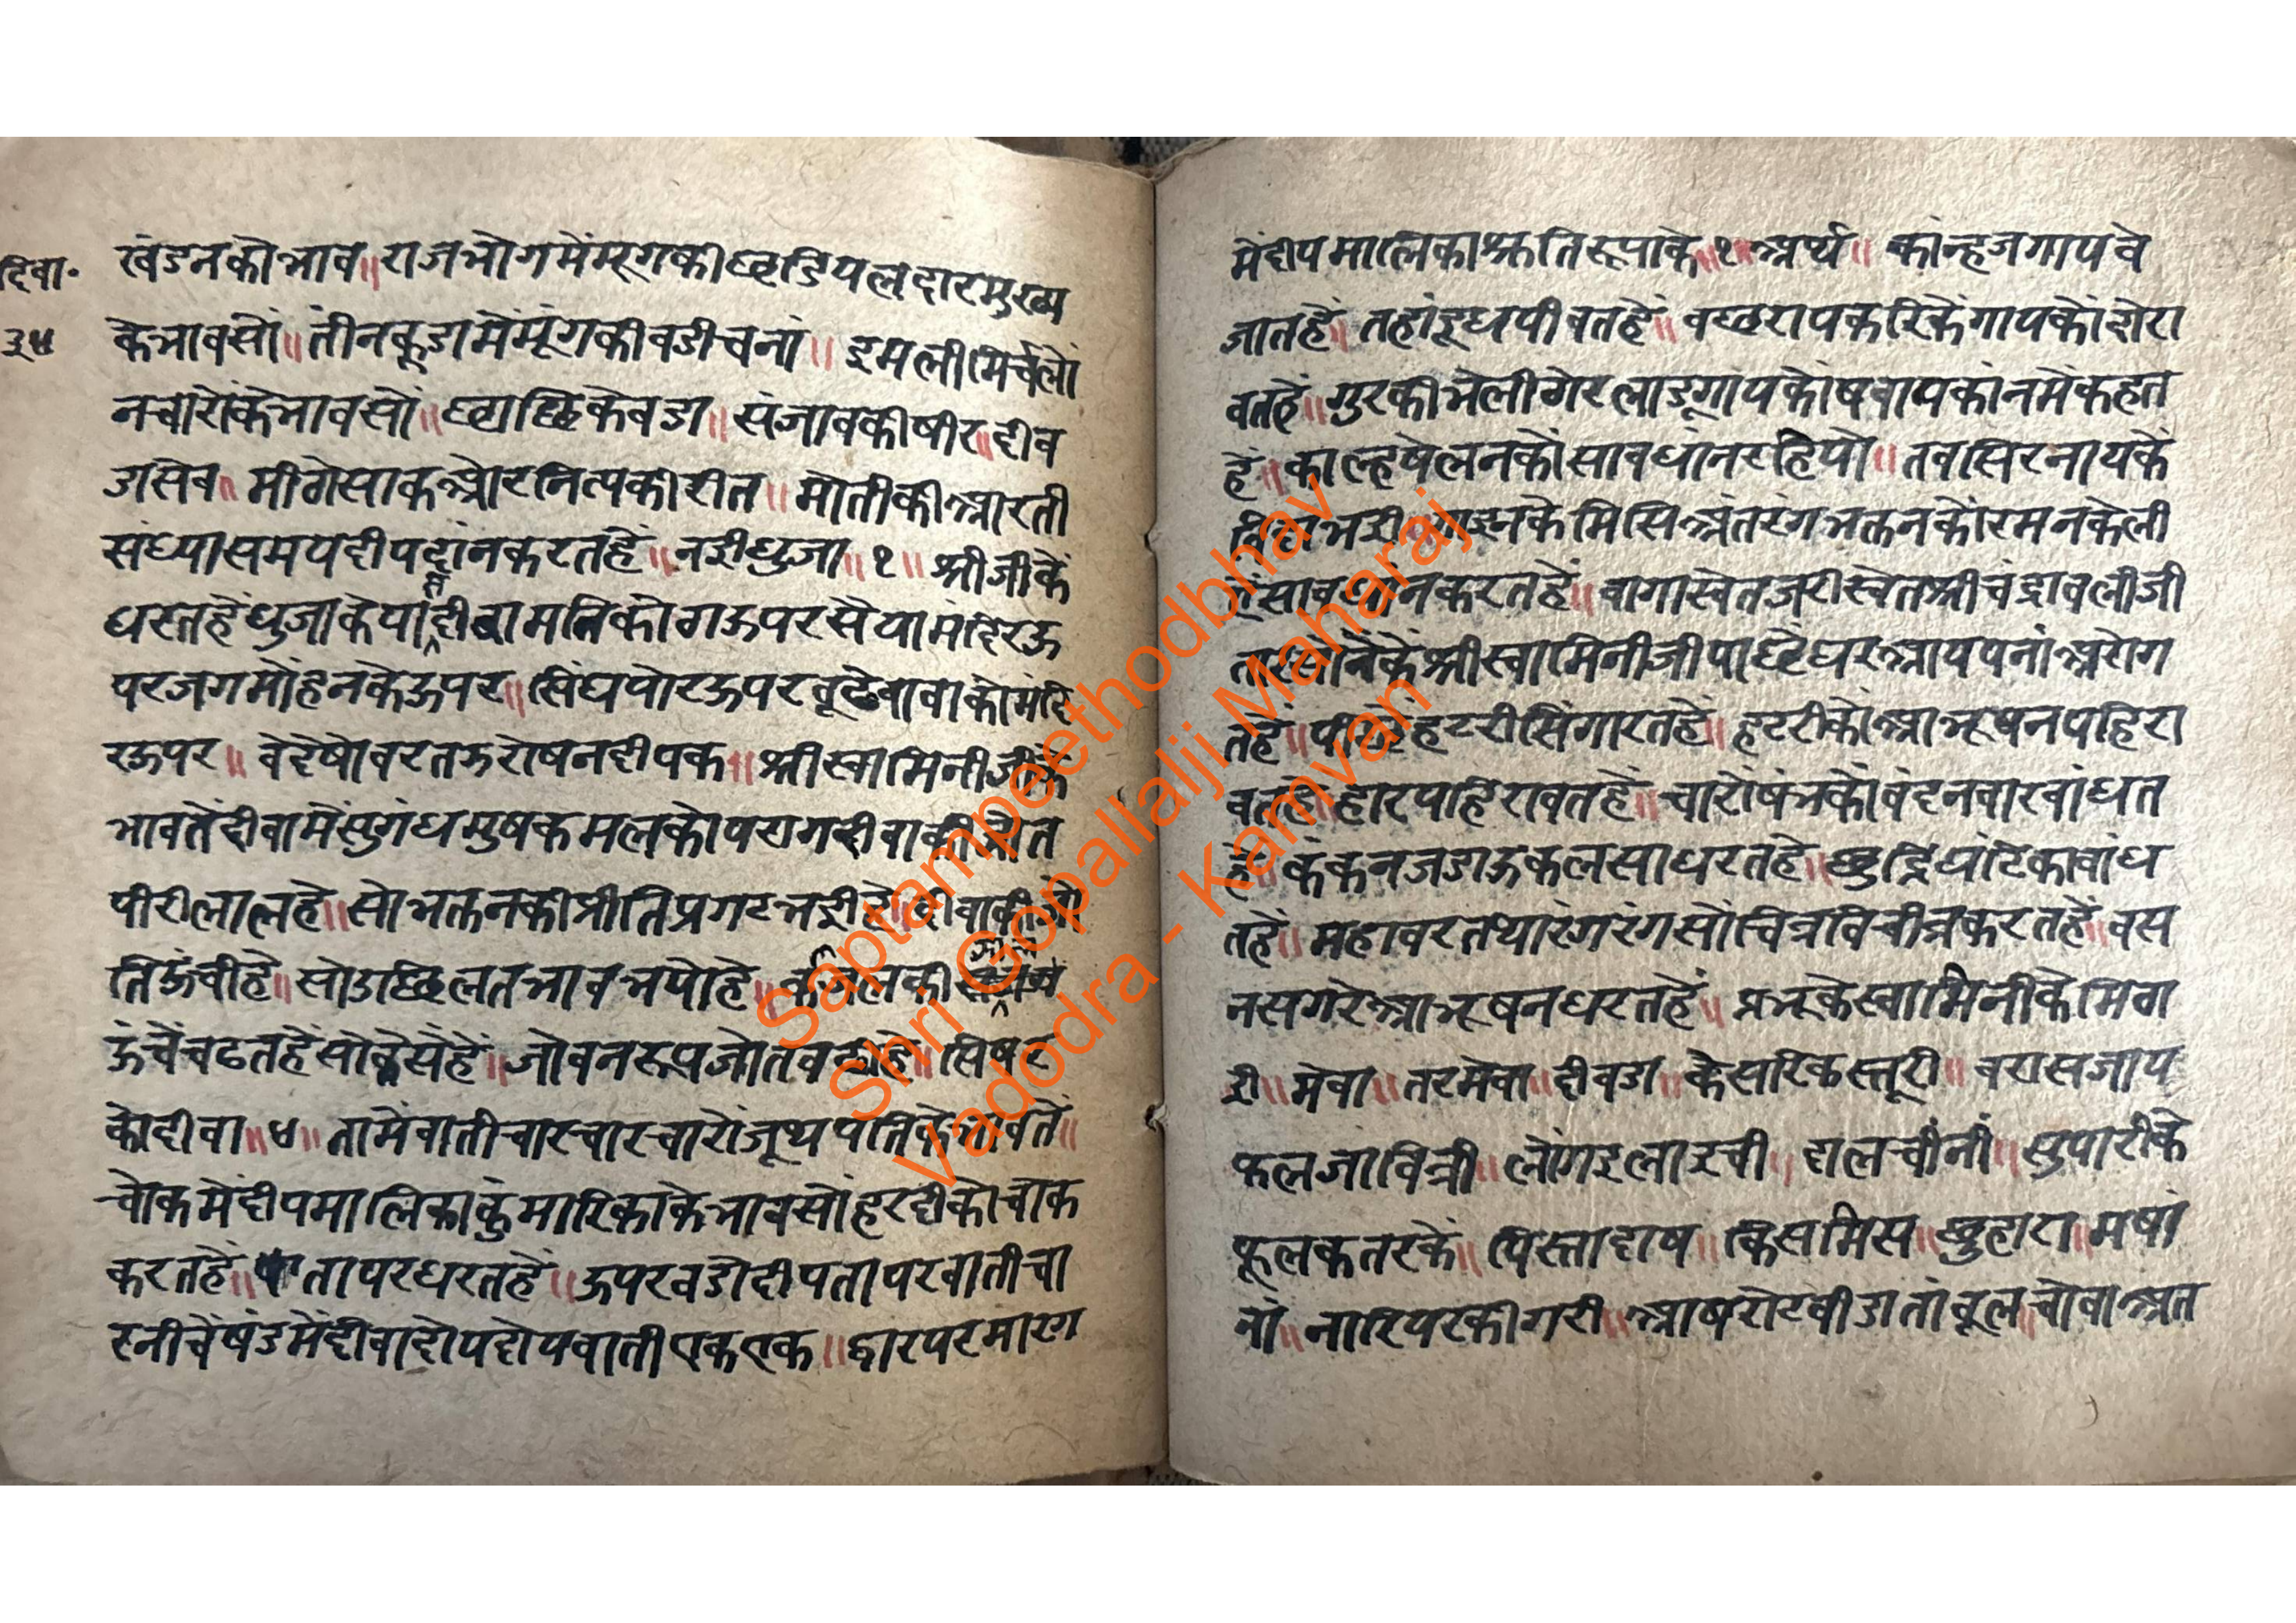 दिवा॰
३५
खंडनकोभाव॥राजभोगमेंमूगकीछडियलदारमुख्य
केभावसों॥तीनकूडामेंमूंगकीवडीचनां॥इमलीमिर्चलों
नचारोंकेभावसों॥छाछिकेवडा॥संजावकीषीर॥दीव
डासेव॥मीठोसाकओरनित्यकीरीत॥मोतीकीआरती
संध्यासमयदीपदांनकरतहें॥नईीधुजा॥१॥श्रीजीकें
धरतहेंधुजाकेपासदीवामनिकोठाऊपरसैयामंदिरऊ
परजगमोंहनकेऊपर॥सिंघपोरऊपरवूढेवावाकोमंदि
रऊपर॥वेदेषोवरतऊरोषनदीपक॥श्रीस्वामिनीजीके
भावतेंदीवामेंसुगंधमुषकमलकोपरागदीवाकीजोत
पीरीलालहे॥सोभक्तनकीप्रीतिप्रगटभईीहे॥दीवाकीजो
तिऊंचीहे॥सोउछिलतभावभयोहे॥
ऊंचेंचढतहेंसोकुसेंहें॥जोवनरूपजोतवनीहे॥सिषर
कोदीवा॥४॥तामेंवातीचारचारचारोंजूथपतिकेभावतें॥
चोकमेंदीपमालिकाकुंमारिकाकेभावसोंहरदीकोचोक
करतहें॥तापरधरतहें॥ऊपरवडोदीपतापरवातीचा
रनीचेंषंडमेंदीवादोयदोयवातीएकएक॥द्वारपरमारग
मेंदीपमालिकाश्रुतिरूपाके॥१॥अर्थ॥कांन्हजगायवे
जातहें॥तहांदूधपीवतहें॥वछरायकरिकेंगायकोंदोरा
वतहें॥गुरकीभेलीठोरलाडूगायकोंषवायकांनमेंकहत
हें॥काल्हषेलनकोंसावधांनरहियो॥तवसिरनायकें
अंतरंगभक्तनकोंरमनकेली
वागास्वेतजरीस्वेतश्रीचंद्रावलीजी
श्रीस्वामिनीजीपाछेंधरआयपनांअरोग
तहें॥पीछेंहटरीसिंगारतहें॥हटरीकोंआभूषनपहिरा
वतहें॥हारपहिरावतहें॥चारोंषंभकोंवंदनवारवांधत
हें॥कंकनजडाऊकलसाधरतहें॥छुद्रिघंटिकावांध
तहें॥महावरतथारंगरंगसोंचित्रविचीत्रकरतहें॥वस
नसगरेआभूषनधरतहें॥प्रभूकेस्वामिनीकेमिठा
ई॥मेवा॥तरमेवा॥दीवडा॥केसरिकस्तूरी॥वरासजाय
फलजावित्री॥लोंगइलाइची॥दालचींनीं॥सुपारीके
फूलकतरकें॥पिस्तादाष॥किसमिस॥छुहारा॥मषां
नां॥नारियरकीगरी॥आषरोटवीडातांवूल॥चोवाअत
Saptampeethodbhav
Shri Gopallalji Maharaj
Vadodra - Kamvan